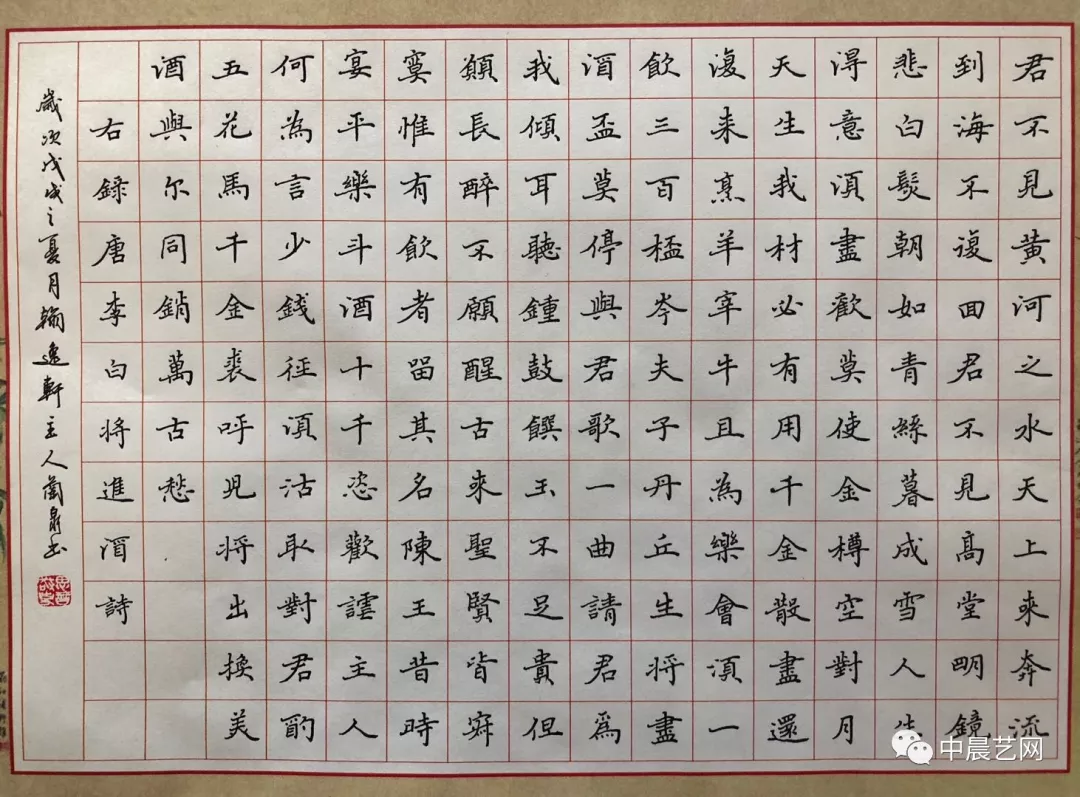 君不見黄河之水天上來奔流
到海不復回君不見高堂明鏡
悲白髮朝如青絲暮成雪人生
得意須盡歡莫使金樽空對月
天生我材必有用千金散盡還
復来烹羊宰牛且為樂會須一
飲三百杯岑夫子丹丘生将盡
酒盃莫停與君歌一曲請君爲
我傾耳聽鐘鼓饌玉不足貴但
願長醉不願醒古來聖賢皆寂
寞惟有飲者留其名陳王昔時
宴平樂斗酒十千恣歡謔主人
何為言少錢徑須沽取對君酌
五花馬千金裘呼児将出換美
酒與尔同銷萬古愁
右錄唐李白将進酒詩
歲次戊戌之夏月翰逸軒主人蘭泉書
中晨艺网